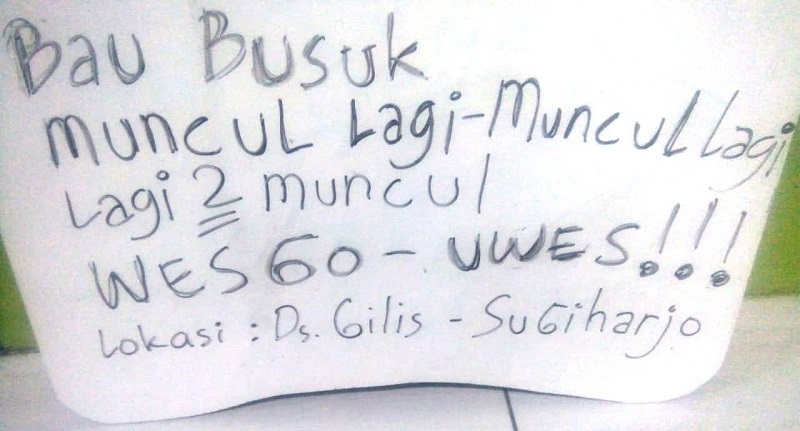 Bau Busuk
muncul Lagi-Muncul lagi
Lagi 2 muncul
WES GO - UWES!!!
Lokasi : Ds. Gilis - SuGiharjo